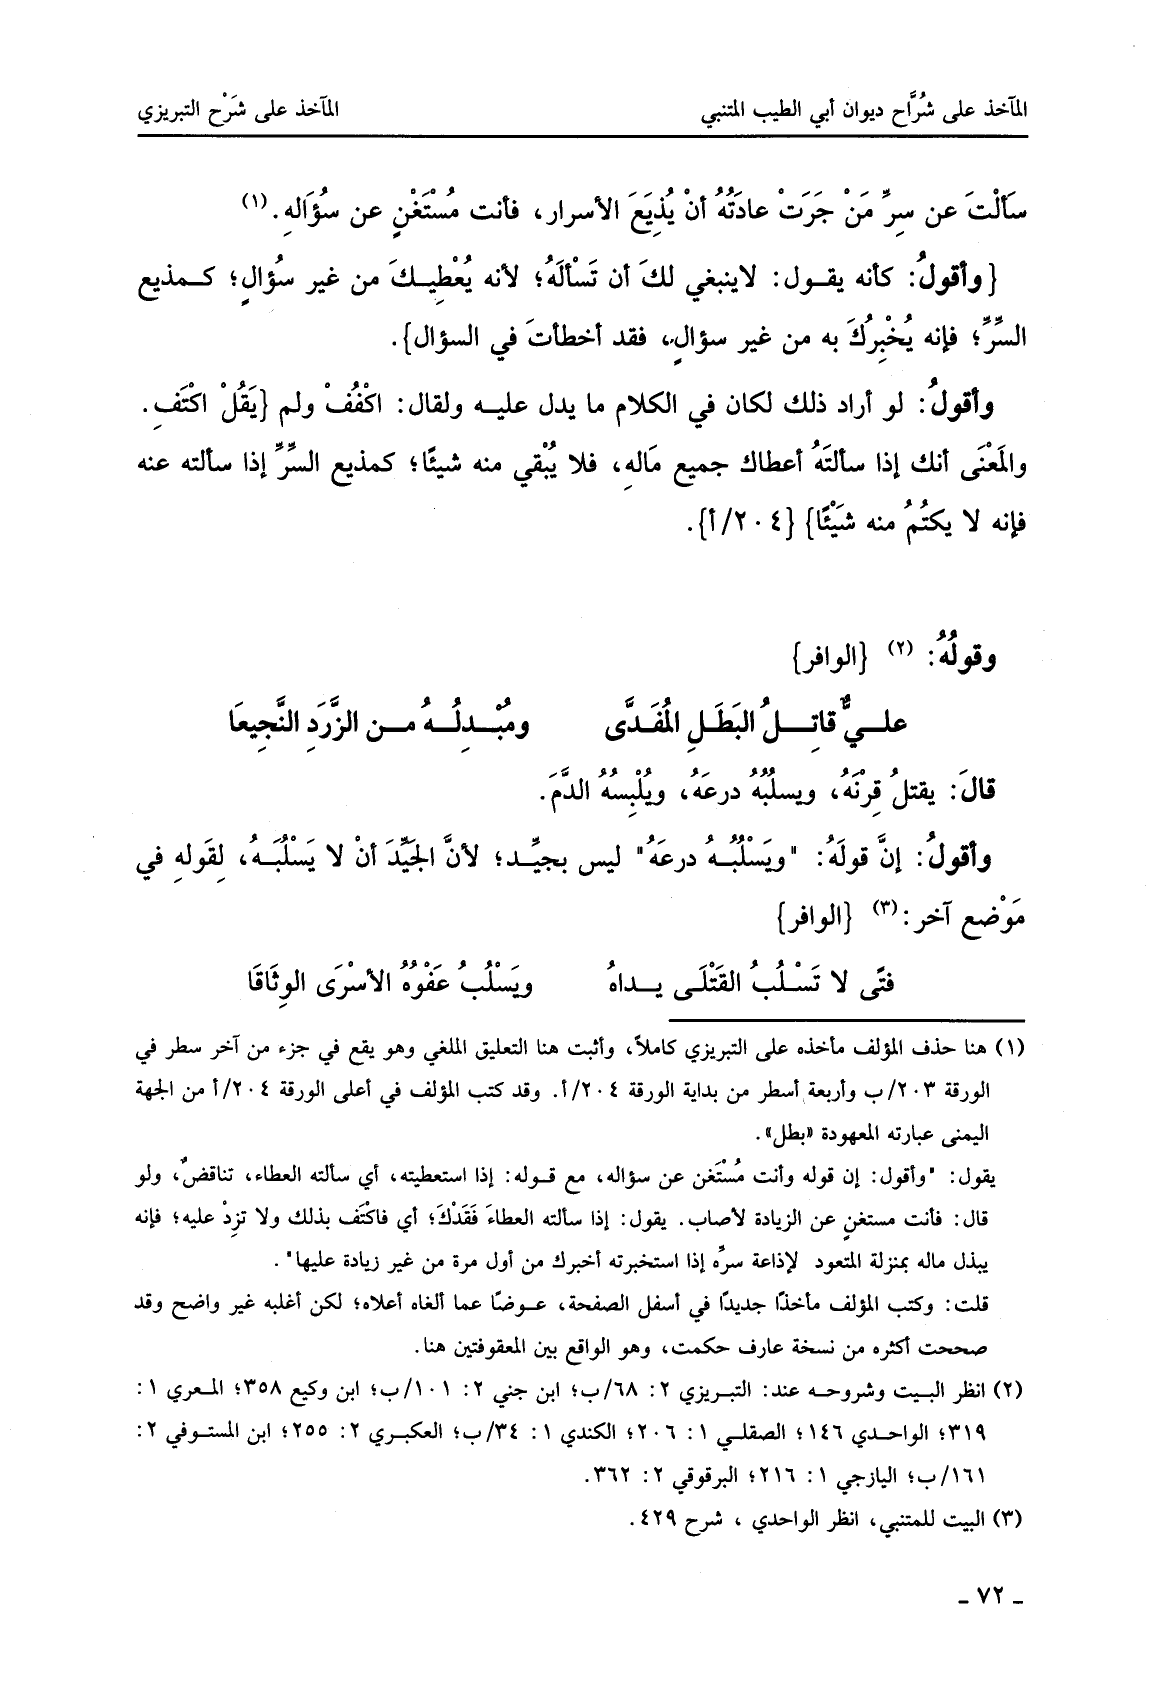 المآخذ على شُرَّاح ديوان أبي الطيب المتنبي المآخذ على شَرْح التبريزي
سَألْتَ عن سِرِّ مَنْ جَرَتْ عادَتُهُ أنْ يُذِيَعَ الأسرار، فأنت مُسْتَغْنٍ عن سؤُاَلهِ.(١)
{وأقولُ: كأنه يقول: لاينبغي لكَ أن تَسْألَهُ؛ لأنه يُعْطِيكَ من غير سؤُالٍ؛ كمذيع
السِّرِّ؛ فإنه يُخْبِرُكَ به من غير سؤالٍ، فقد أخطأتَ في السؤال}.
وأقولُ: لو أراد ذلك لكان في الكلام ما يدل عليه ولقال: اكْفُفْ ولم {يَقُلْ اكْتَفِ.
والمَعْنَى أنك إذا سألتَهُ أعطاك جميع مَالهِ، فلا يُبْقي منه شيئًا؛ كمذيع السِّرِّ إذا سألته عنه
فإنه لا يكتُمُ منه شَيْئًا} {٢٠٤/أ}.
وقولُهُ: (٢) {الوافر}
عليٌّ قاتِلُ البَطَلِ المُفَدَّى ومُبْدِلُهُ من الزَّرَدِ النَّجِيعَا
قالَ: يقتلُ قِرْنَهُ، ويسلبُهُ درعَهُ، ويُلْبِسُهُ الدَّمَ.
وأقولُ: إنَّ قولَهُ: "ويَسْلُبُهُ درعَهُ" ليس بجيِّد؛ لأنَّ الجَيِّدَ أنْ لا يَسْلُبَهُ، لِقَولهِ في
مَوْضع آخر:(٣) {الوافر}
فتًى لا تَسْلُبُ القَتْلَى يداهُ ويَسْلُبُ عَفْوُهُ الأسْرَى الوِثَاقَا
(١) هنا حذف المؤلف مأخذه على التبريزي كاملاً، وأثبت هنا التعليق الملغي وهو يقع في جزء من آخر سطر في
الورقة ٢٠٣/ب وأربعة أسطر من بداية الورقة ٢٠٤/أ. وقد كتب المؤلف في أعلى الورقة ٢٠٤/أ من الجهة
اليمنى عبارته المعهودة «بطل».
يقول: "وأقول: إن قوله وأنت مُسْتَغن عن سؤاله، مع قوله: إذا استعطيته، أي سألته العطاء، تناقضٌ، ولو
قال: فأنت مستغنٍ عن الزيادة لأصاب. يقول: إذا سألته العطاءَ فَقَدْكَ؛ أي فاكْتَف بذلك ولا تزِدْ عليه؛ فإنه
يبذل ماله بمنزلة المتعود لإذاعة سرِّه إذا استخبرته أخبرك من أول مرة من غير زيادة عليها".
قلت: وكتب المؤلف مأخذًا جديدًا في أسفل الصفحة، عوضًا عما ألغاه أعلاه؛ لكن أغلبه غير واضح وقد
صححت أكثره من نسخة عارف حكمت، وهو الواقع بين المعقوفتين هنا.
(٢) انظر البيت وشروحه عند: التبريزي ٢: ٦٨/ب؛ ابن جني ٢: ١٠١/ب؛ ابن وكيع ٣٥٨؛ المعري ١:
٣١٩؛ الواحدي ١٤٦؛ الصقلي ١: ٢٠٦؛ الكندي ١: ٣٤/ب؛ العكبري ٢: ٢٥٥؛ ابن المستوفي ٢:
١٦١/ب؛ اليازجي ١: ٢١٦؛ البرقوقي ٢: ٣٦٢.
(٣) البيت للمتنبي، انظر الواحدي ، شرح ٤٢٩.
ـ ٧٢ ـ